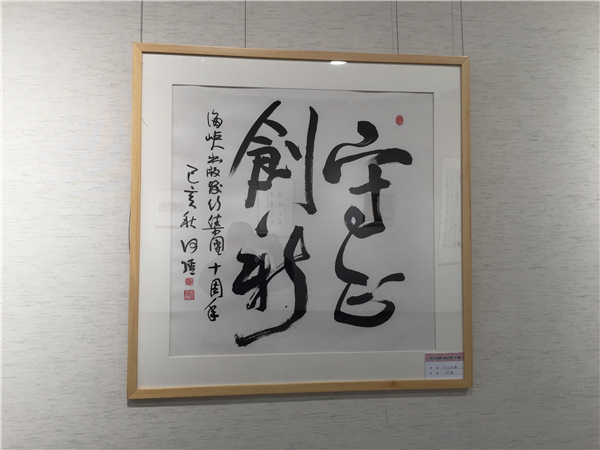 守正
創新
海峡出版发行集團十周年
己亥秋